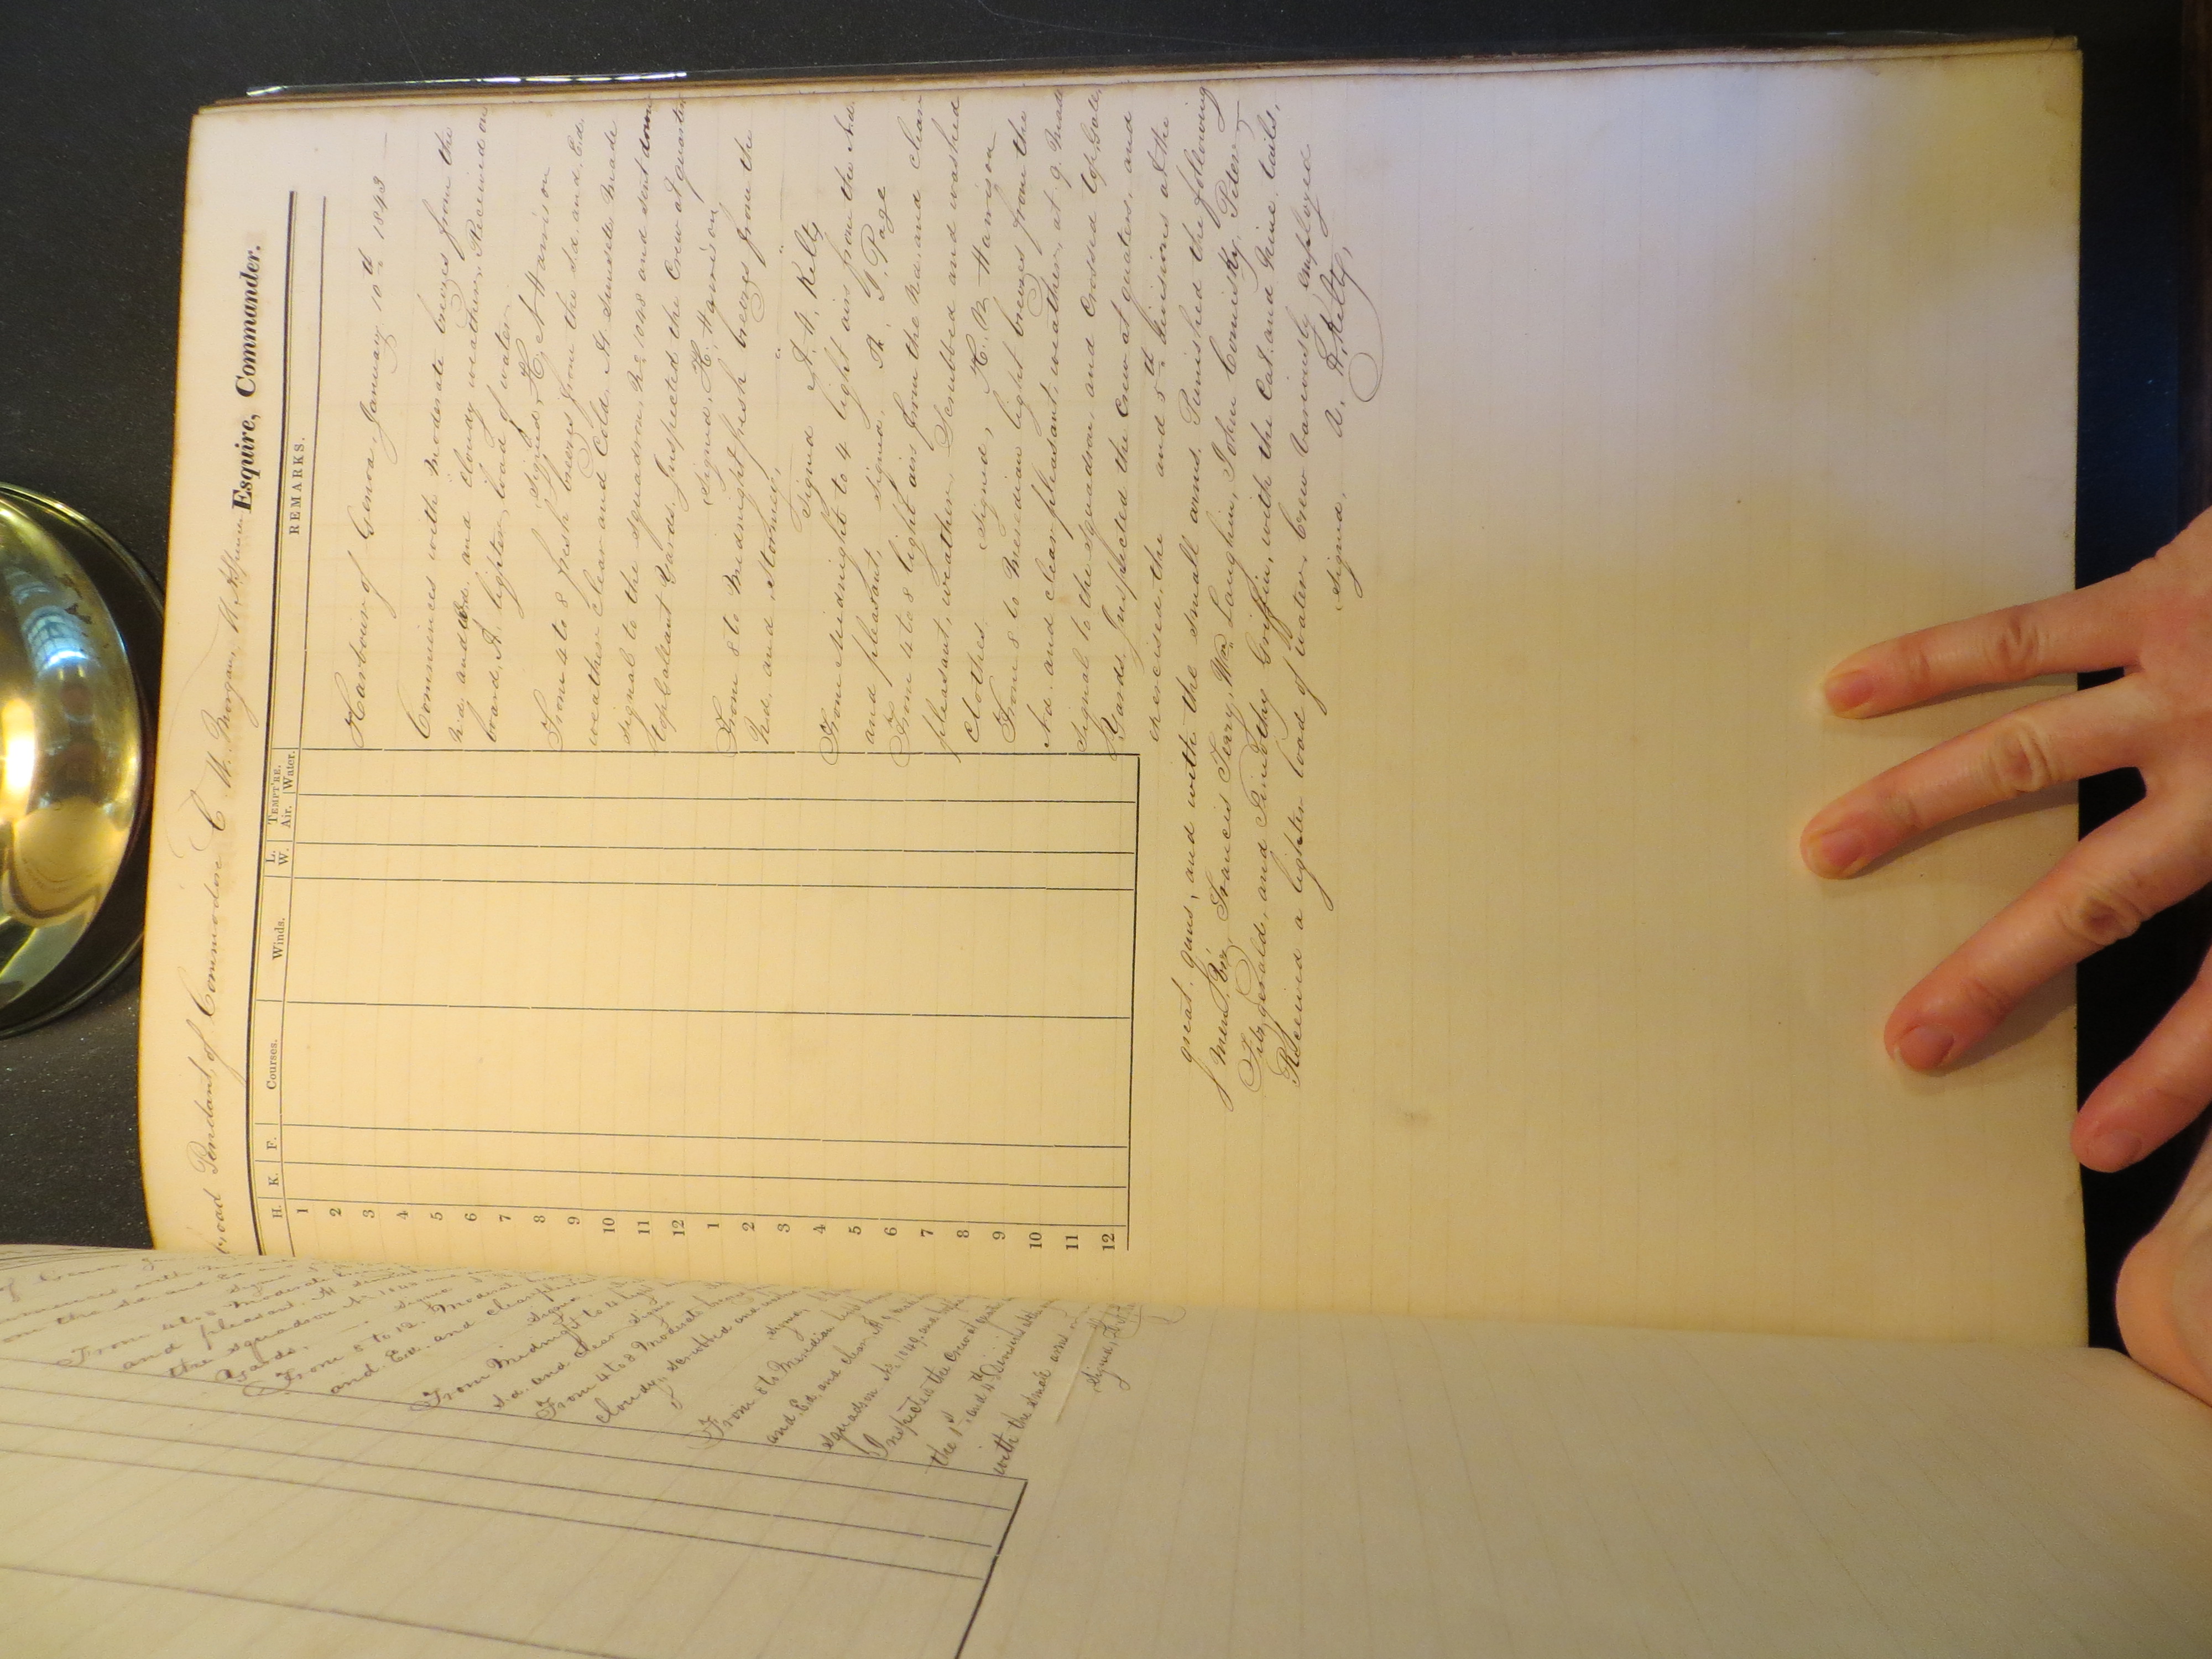 broad Pendant, of Commodore C W. Morgan, Esquire, Commander.
H. K. F. Courses. Winds. L. W. TEMPT'RE. Air. Water. REMARKS.
1
2
3
4
5
6
7
8
9
10
11
12
1
2
3
4
5
6
7
8
9
10
11
12
Harbour of Genoa January 10th 1843
Commences with Moderate breezes from the
Nd. and Ed. and cloudy weather. Received on
board A lighter load of water
Signed H. N Harrison
From 4 to 8 fresh breezes from the Nd. and Ed.
weather clear and Cold. At Sunset Made
signal to the squadron, No 1048 and sent down
topGallant Yards. Inspected the Crew at quarters
Signed, H. Harrison,
From 8 to Midnight fresh breezes from the
Nd. and Stormy,
Signed A. H. Kelty
From Midnight to 4 light airs from the Nd.
and pleasant, Signed. R. G. Page
From 4 to 8 light airs from the Nd. and clear
pleasant, weather. Scrubbed and washed
Clothes. Signed, H. N Harrison
From 8 to Meredian light breezes from the
Nd. and clear pleasant weather, at 9 Made
signal to the squadron, and crossed topGall.
Yards. Inspected the Crew at quarters, and
exercised the and 5th divisions at the
great guns, and with the small arms. Punished the following
men. Viz, Francis Terry, Wm Laughlin, John Comisky, Peter
Fitzgerald, and Timothy Griffin, with the Cat. and Nine tails,
Received a lighter load of water. Crew variously employed
Signed. A. H. Kelty,
From 4 to 8 Moderate
and pleasant. At
the squadron No 1148
Yards.
From 8 to 12. Moderate
and Ed. and Clear
From Midnight to 4
Nd. and clear
From 4 to 8 Moderate
cloudy, scrubbed and
From 8 to Meridian
and Ed. and clear
squadron No
Inspected the Crew
the 1st. and 4th Divisions
with the small arms
Signed,